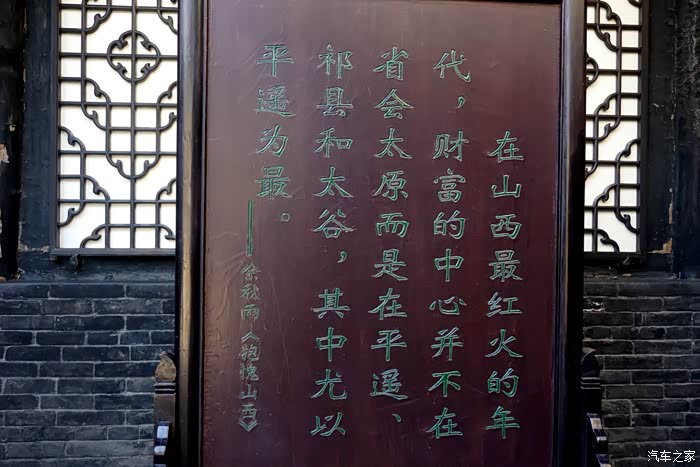 在山西最红火的年
代，财富的中心并不在
省会太原而是在平遥、
祁县和太谷，其中尤以
平遥为最。——余秋雨《抱愧山西》
汽车之家